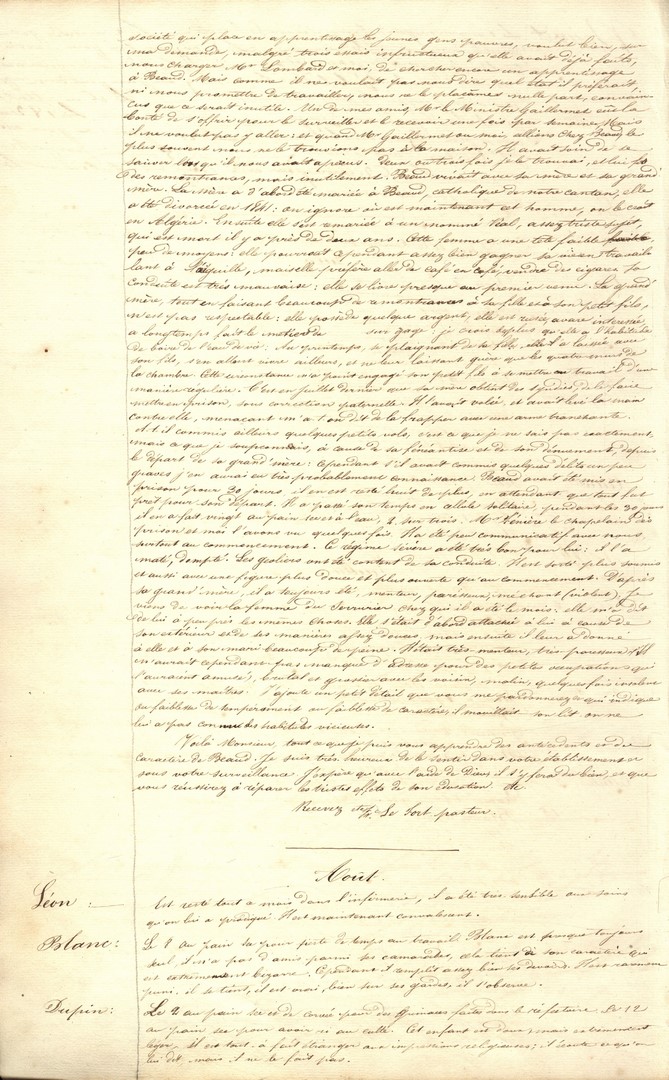 société qui place en apprentissage les jeunes gens pauvres, voulut bien, sur
ma demande, malgré trois essais infructueux qu'elle avait déjà faits,
nous charger Mr Lombard et moi de chercher encore un apprentissage
à Beaud. Mais comme il ne voulait pas nous dire quel état il préférait,
ni nous promettre de travailler, nous ne le plaçâmes nulle part, convain-
cus que ce serait inutile. Un de mes amis, Mr le Ministre Gaillermet eut la
bonté de s'offrir pour le surveiller et le recevoir une fois par semaine. Mais
il ne voulut pas y aller; et quand Mr Gaillermet ou moi, allions chez Beaud, le
plus souvent nous ne le trouvions pas à la maison. Il avait soin de se
sauver lorsqu'il nous avait aperçus. Deux ou trois fois je le trouvai, et lui fis
des remontrances, mais inutilement. Beaud vivait avec sa mère et sa grand'
mère. La mère a d'abord été mariée à Beaud, catholique de notre canton, elle
a été divorcée en 1841: on ignore où est maintenant cet homme, on le croit
en Algérie. Ensuite elle s'est remariée à un nommé Réal, assez triste sujet,
qui est mort il y a près de deux ans. Cette femme a une tête faible
peu de moyens: elle pourrait cependant assez bien gagner sa vie en travail-
lant à l'aiguille, mais elle préfère aller de café en café, vendre des cigares. Sa
conduite est très mauvaise: elle se livre presque au premier venu. La grand'
mère, tout en faisant beaucoup de remontrances à sa fille et à son petit fils,
n'est pas respectable: elle possède quelque argent, elle est rusée, avare intéressée,
a longtemps fait le métier de sur gage je crois de plus qu'elle a l'habitude
de boire de l'eau de vie. Au printemps, se plaignant de sa fille, elle l'a laissée avec
son fils, s'en allant vivre ailleurs, et ne leur laissant guère que les quatre murs de
la chambre. Cette circonstance n'a point engagé son petit fils à se mettre au travail d'une
manière régulière. C'est en juillet dernier que sa mère obtint des syndics de le faire
mettre en prison, sous correction paternelle. Il l'avait volée, et avait levé la main
contre elle, menaçant m'a t'on dit de la frapper avec une arme tranchante.
A t'il commis ailleurs quelques petits vols, c'est ce que je ne sais pas exactement
mais ce que je soupçonnais, à cause de sa fénéantise et de son dénuement, depuis
le départ de sa grand'mère: cependant s'il avait commis quelques délits un peu
graves j'en aurais eu très probablement connaissance. Beaud avait été mis en
prison pour 30 jours, il en est resté huit de plus, en attendant que tout fut
prêt pour son départ. Il a passé son temps en cellule solitaire, pendant les 30 jours
il en a fait vingt au pain sec et à l'eau, 2 sur trois. Mr le chapelain des
prison et moi l'avons vu quelques fois. Il a été peu communicatif avec nous
surtout au commencement. Ce régime sévère a été très bon pour lui: il l'a
maté, dompté. Les geôliers ont été content de sa conduite. Il est sorti plus soumis
et aussi avec une figure plus douce et plus ouverte qu'au commencement. D'après
sa grand'mère, il a toujours été, menteur, paresseux, méchant (violent), Je
viens de voir la femme du Serrurier chez qui il a été le mois: elle m'a dit
de lui à peu près les mêmes choses. Elle s'était d'abord attachée à lui à cause de
son extérieur et de ses manières assez douces, mais ensuite il leur a donné
à elle et à son mari beaucoup de peine. Il était très menteur, très paresseux, il
n'aurait cependant pas manqué d'adresse pour des petites occupations qui
l'auraient amusé; brutal et grossier avec les voisins, malin, quelques fois insolent
avec ses maîtres. J'ajoute un petit détail que vous me pardonnerez et qui indique
ou faiblesse de tempérament ou faiblesse de caractère, il mouillait son lit on ne
lui a pas connu des habitudes vicieuses.
Voilà Monsieur, tout ce que je puis vous apprendre des antécédents et du
caractère de Beaud. Je suis très heureux de le sentir dans votre établissement et
sous votre surveillance. J'espère qu'avec l'aide de Dieu il s'y fera du bien, et que
vous réussirez à réparer les tristes effets de son éducation. etc
Recevez etc. Le Fort pasteur.
Août.
Léon: Est resté tout a mois dans l'infirmerie, il a été très sensible aux soins
qu'on lui a prodigué. Il est maintenant convalescent.
Blanc: Le 8 au pain sec pour perte de temps au travail. Blanc est presque toujours
seul, il n'a pas d'amis parmi ses camarades, cela tient de son caractère qui
est extrêmement bizarre. Cependant il remplit assez bien ses devoirs. Il est rarement
puni, il se tient, il est vrai, bien sur ses gardes, il s'observe.
Dupin: Le 2 au pain sec et de corvée pour des grimaces faites dans le réfectoire. Le 12
au pain sec pour avoir ri au culte. Cet enfant est doux, mais extrêmement
léger, il est tout à fait étranger aux impressions religieuses; il écoute ce qu'on
lui dit mais il ne le fait pas.